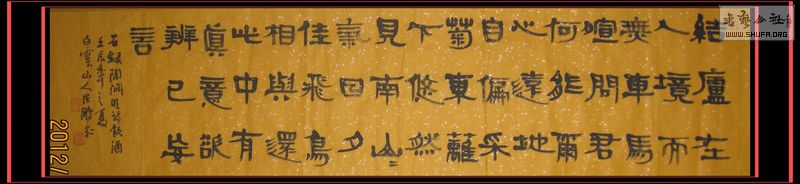 結廬在
人境而
無車馬
喧問君
何能爾
心遠地
自偏采
菊東籬
下悠然
見南山〻
氣日夕
佳飛鳥
相與還
此中有
真意欲
辨已忘
言
右錄陶淵明詩飲酒
壬辰年之夏
白雲山人
2012/
书艺公社
WWW.SHUFA.ORG